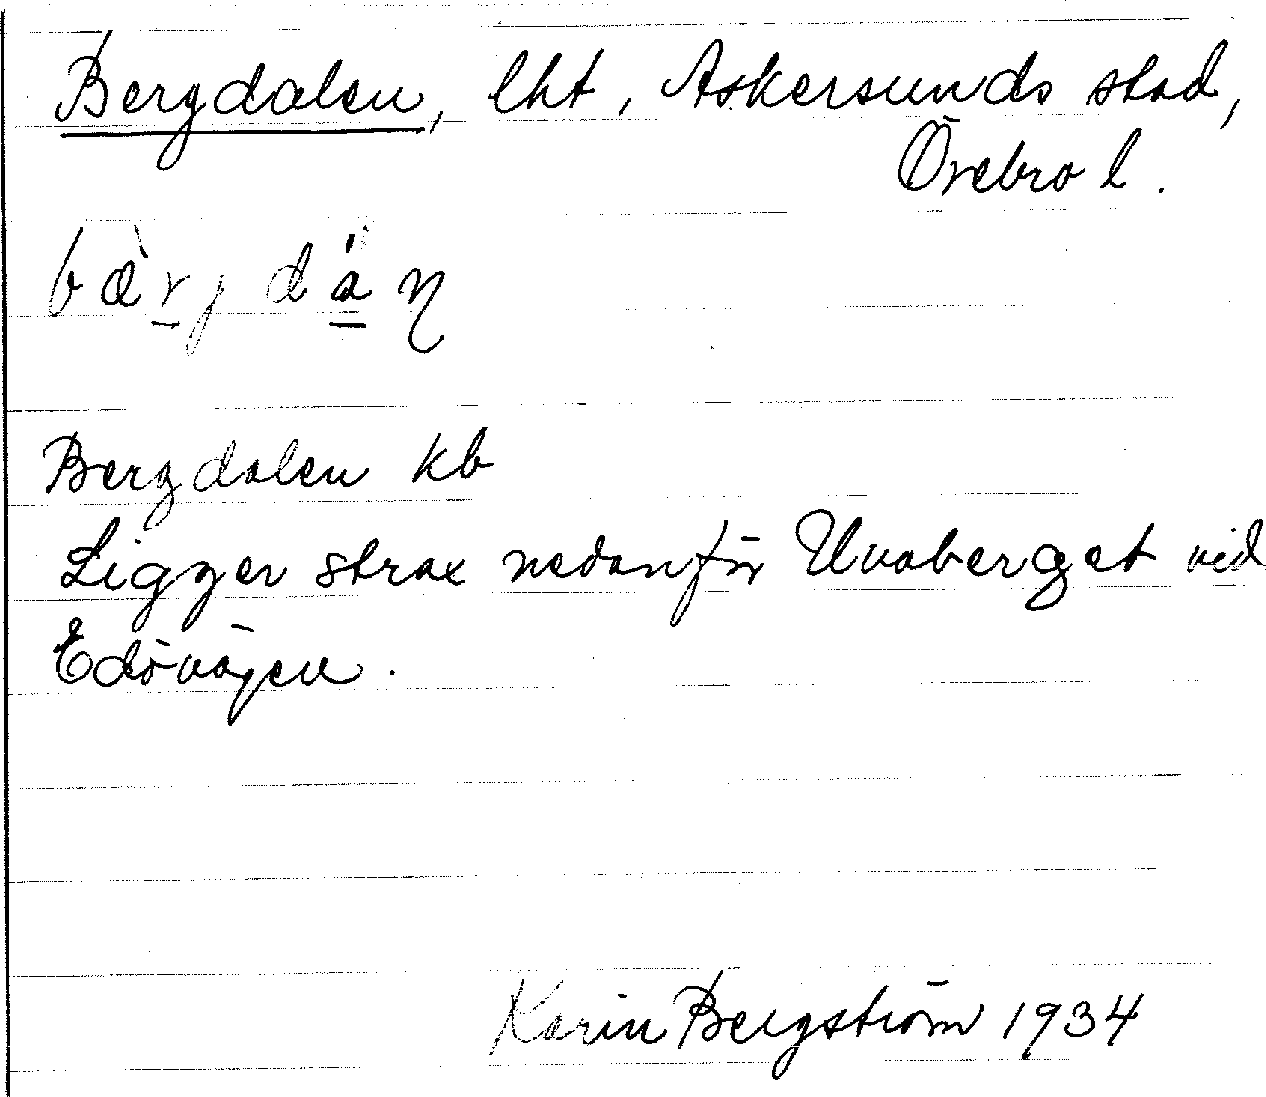 Bergdalen, lht, Askersunds stad,
Örebro l.
bæ̀r̠j dá̠ņ
Bergdalen kb
Ligger strax nedanför Uvaberget vid
Edövägen.
Karin Bergström 1934